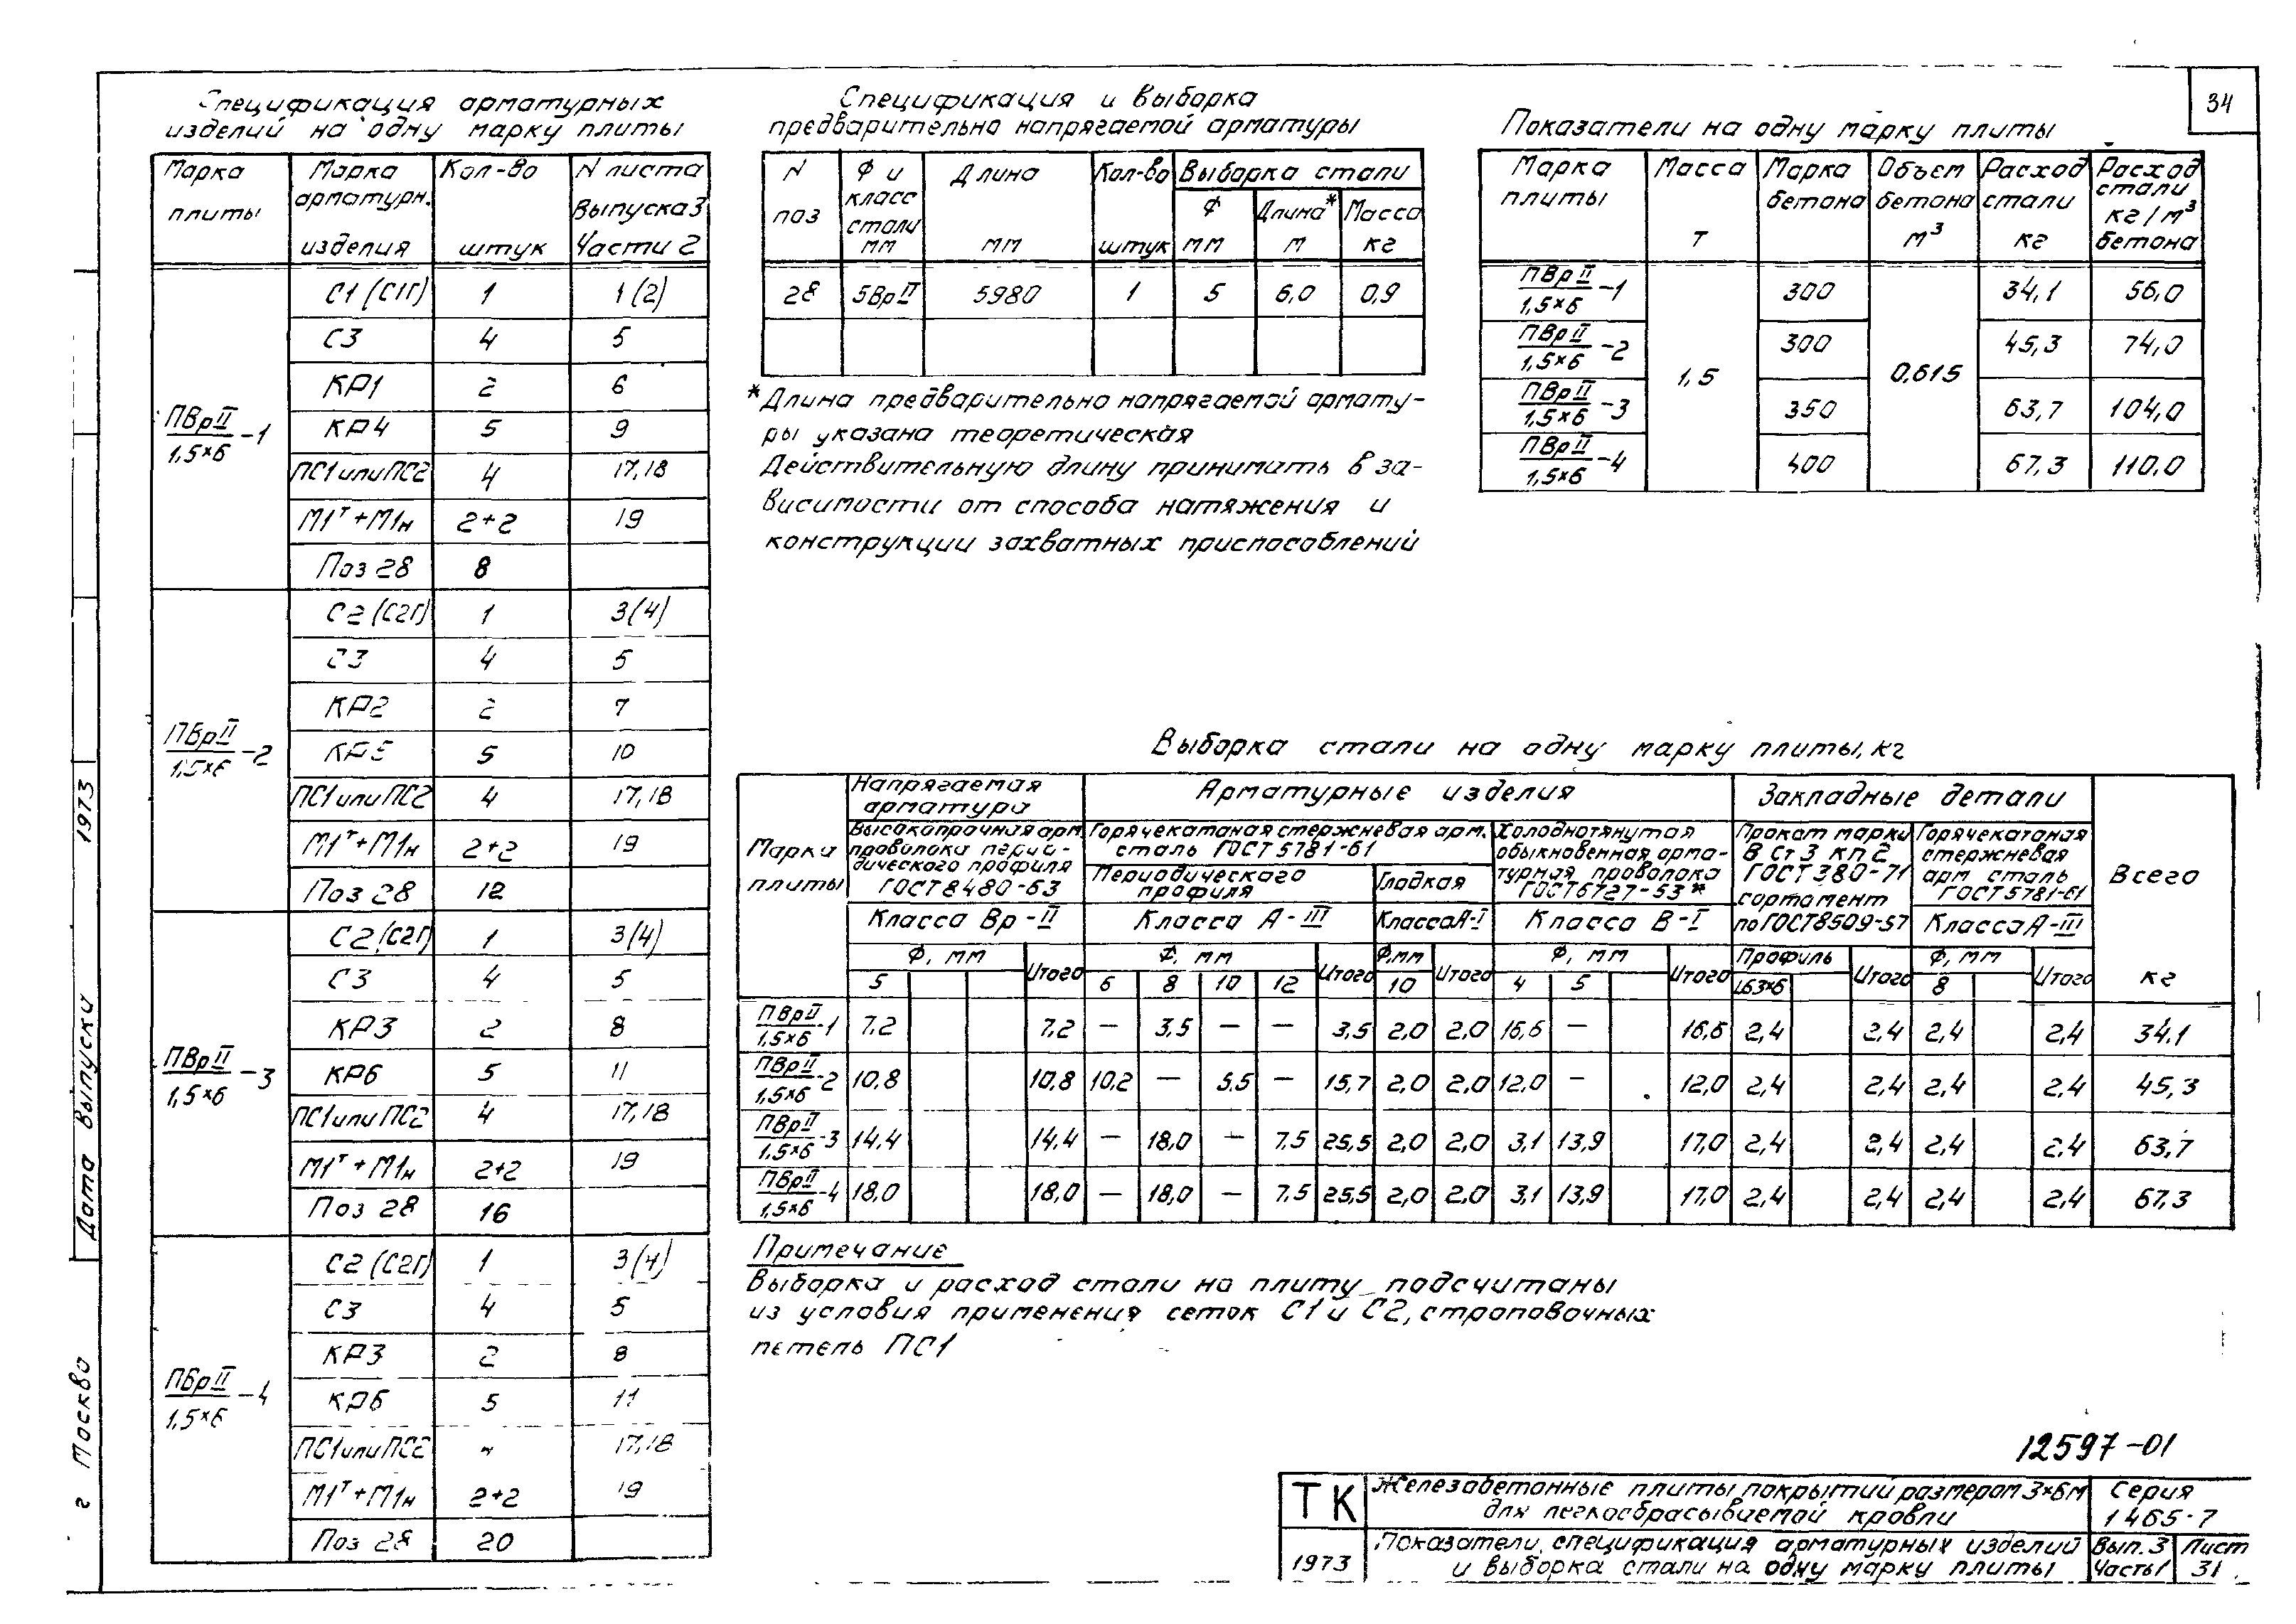 34
Спецификация арматурных
изделий на одну марку плиты
Марка плиты | Марка арматурн. изделия | Кол-во штук | N листа выпуска 3 Части 2
ПВрII/1,5×6 -1 | С1 (С1Г) | 1 | 1 (2)
С3 | 4 | 5
КР1 | 2 | 6
КР4 | 5 | 9
ПС1 или ПС2 | 4 | 17,18
М1т+М1н | 2+2 | 19
Поз 28 | 8
ПВрII/1,5×6 -2 | С2 (С2Г) | 1 | 3(4)
С3 | 4 | 5
КР2 | 2 | 7
КР5 | 5 | 10
ПС1 или ПС2 | 4 | 17,18
М1т+М1н | 2+2 | 19
Поз 28 | 12
ПВрII/1,5×6 -3 | С2 (С2Г) | 1 | 3(4)
С3 | 4 | 5
КР3 | 2 | 8
КР6 | 5 | 11
ПС1 или ПС2 | 4 | 17,18
М1т+М1н | 2+2 | 19
Поз 28 | 16
ПВрII/1,5×6 -4 | С2 (С2Г) | 1 | 3(4)
С3 | 4 | 5
КР3 | 2 | 8
КР6 | 5 | 11
ПС1 или ПС2 | 4 | 17,18
М1т+М1н | 2+2 | 19
Поз 28 | 20
Спецификация и выборка
предварительно напрягаемой арматуры
N поз | Ф и класс стали мм | Длина мм | Кол-во штук | Выборка стали | Ф мм | Длина* м | Масса кг
28 | 5ВрII | 5980 | 1 | 5 | 6,0 | 0,9
*Длина предварительно напрягаемой армату-
ры указана теоретическая
Действительную длину принимать в за-
висимости от способа натяжения и
конструкции захватных приспособлений
Показатели на одну марку плиты
Марка плиты | Масса Т | Марка бетона | Объем бетона м³ | Расход стали кг | Расход стали кг/м³ бетона
ПВрII/1,5×6 -1 | 1,5 | 300 | 0,615 | 34,1 | 56,0
ПВрII/1,5×6 -2 | 300 | 45,3 | 74,0
ПВрII/1,5×6 -3 | 350 | 63,7 | 104,0
ПВрII/1,5×6 -4 | 400 | 67,3 | 110,0
Выборка стали на одну марку плиты, кг
Марка плиты | Напрягаемая арматура | Арматурные изделия | Закладные детали | Всего кг
Высокопрочная арм. проволока периодического профиля ГОСТ 8480-63 | Горячекатаная стержневая арм. сталь ГОСТ 5781-61 | Холоднотянутая обыкновенная арма-турная проволока ГОСТ 6727-53* | Прокат марки В Ст 3 кп 2 ГОСТ 380-71 сортамент по ГОСТ 8509-57 | Горячекатаная стержневая арм сталь ГОСТ 5781-61
Периодического профиля | Гладкая
Класса Вр-II | Класса А-III | Класса А-I | Класса В-I | Класса А-III
Ф, мм | Итого | Ф, мм | Итого | Ф, мм | Итого | Ф, мм | Итого | Профиль | Итого | Ф, мм | Итого
5 | 6 | 8 | 10 | 12 | 10 | 4 | 5 | L63×6 | 8
ПВрII/1,5×6 -1 | 7,2 | 7,2 | — | 3,5 | — | — | 3,5 | 2,0 | 2,0 | 16,6 | — | 16,6 | 2,4 | 2,4 | 2,4 | 2,4 | 34,1
ПВрII/1,5×6 -2 | 10,8 | 10,8 | 10,2 | — | 5,5 | — | 15,7 | 2,0 | 2,0 | 12,0 | — | 12,0 | 2,4 | 2,4 | 2,4 | 2,4 | 45,3
ПВрII/1,5×6 -3 | 14,4 | 14,4 | — | 18,0 | — | 7,5 | 25,5 | 2,0 | 2,0 | 3,1 | 13,9 | 17,0 | 2,4 | 2,4 | 2,4 | 2,4 | 63,7
ПВрII/1,5×6 -4 | 18,0 | 18,0 | — | 18,0 | — | 7,5 | 25,5 | 2,0 | 2,0 | 3,1 | 13,9 | 17,0 | 2,4 | 2,4 | 2,4 | 2,4 | 67,3
Примечание
Выборка и расход стали на плиту подсчитаны
из условия применения сеток С1 и С2, строповочных
петель ПС1
12597-01
ТК
1973
Железобетонные плиты покрытий размером 3×6м
для легкосбрасываемой кровли
Серия
1 465-7
Показатели, спецификация арматурных изделий
и выборка стали на одну марку плиты
Вып. 3
Часть 1
Лист
31
г Москва
Дата выпуска 1973